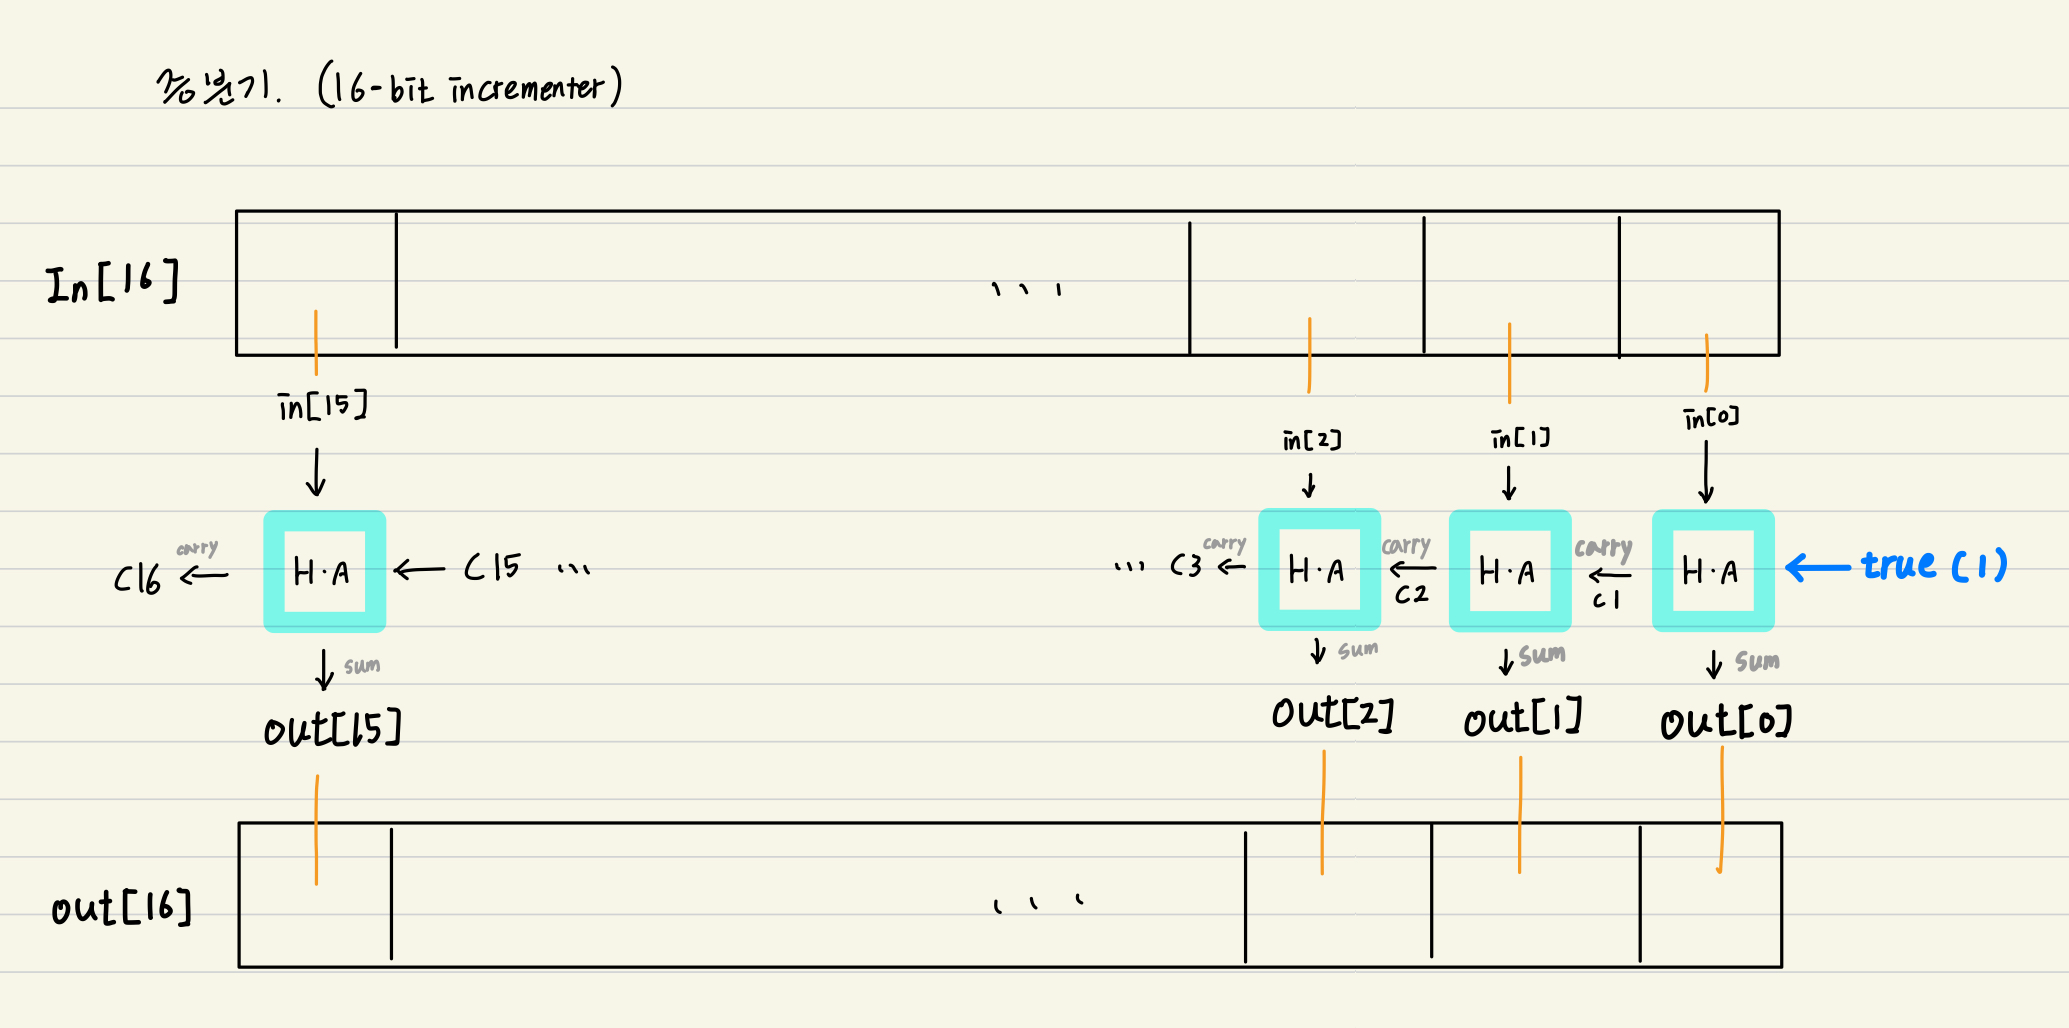 증분기. (16-bit incrementer)
In[16]
...
in[15]
in[2]
in[1]
in[0]
C16
carry
H·A
C15 ...
... C3
carry
H·A
carry
C2
H·A
carry
C1
H·A
true (1)
sum
sum
sum
sum
out[15]
out[2]
out[1]
out[0]
out[16]
...